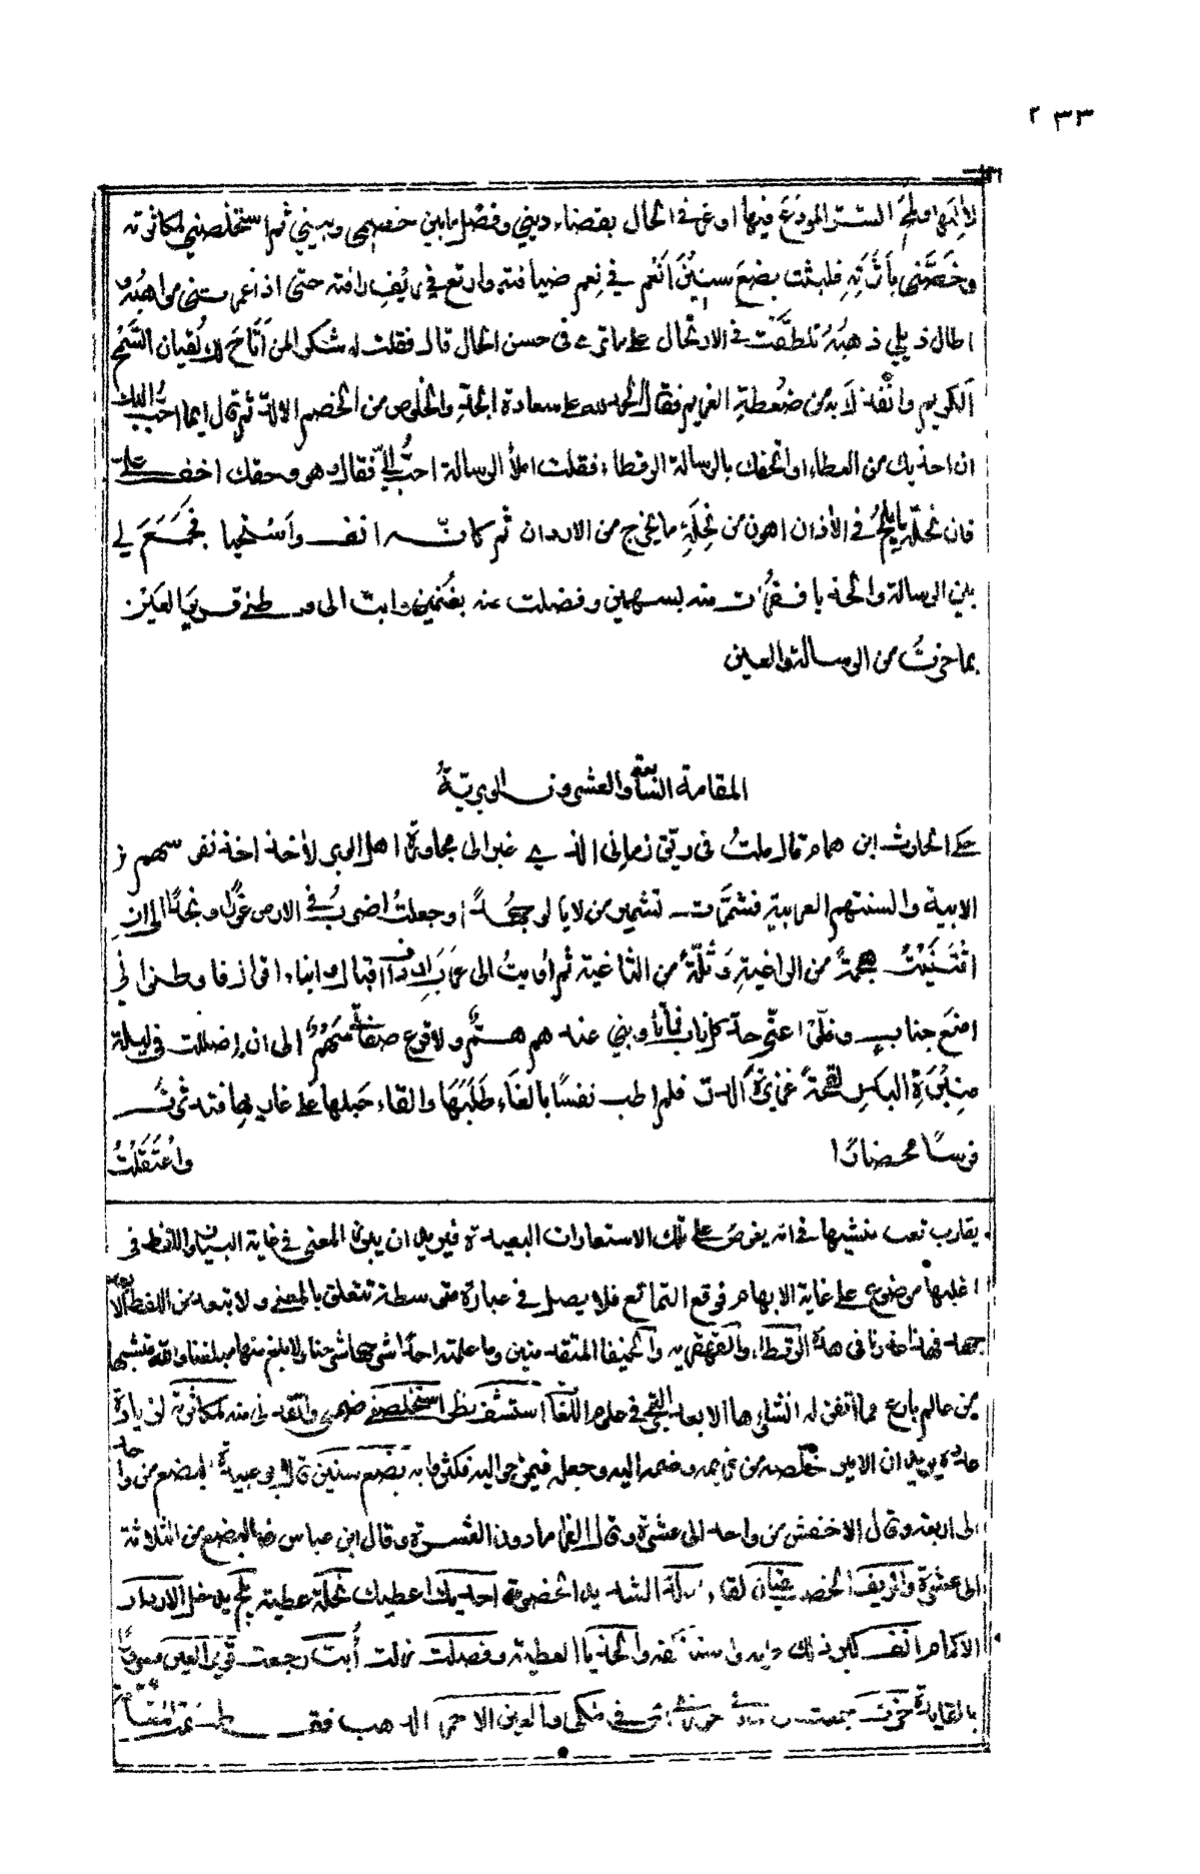 ٢٣٣
لآليها ولمح السر المودع فيها اوعز في الحال بقضاء ديني وفصل ما بين خصمي وبيني ثم استخلصني لمكاثرته
وخصني بأثرته فلبثت بضع سنين انعم في نعم ضيافته وارتع في ريف رأفته حتى اذا غمرتني مواهبه
اطال ذيلي ذهبه تلطفت في الارتحال على ما ترى في حسن الحال قال فقلت له شكرا لمن اتاح لك لقيان السمح
الكريم وانقذك من ضغطة الغريم فقال الحمد لله على سعادة الجد والخلوص من الخصم الالد ثم قال ايما احب اليك
ان احذيك من العطاء او اتحفك بالرسالة الرقطاء فقلت املأ الرسالة احب الي فقال وهو وحقك اخف علي
فان نحلة ما يلج في الأذان اهون من نحلة ما يخرج من الاردان ثم كانه انف واستحيا فجمع لي
بين الرسالة والحذيا ففزت منه بسهمين وفصلت عنه بغنمين وابت الى وطني قرير العين
بما حزت من الرسالة والعين
المقامة السابعة والعشرون الوبرية
حكى الحارث ابن همام قال ملت في ريق زماني الذي غبر الى مجاورة اهل الوبر لأخذ اخذ نفوسهم
الابية والسنتهم العربية فشمرت تشمير من لا يالو جهدا وجعلت اضرب في الارض غورا ونجدا الى ان
اقتنيت هجمة من الراغية وثلة من الثاغية ثم أويت الى عرب ارداف اقيال وابناء اقوال فاوطنوني
امنع جناب وفلوا عني حد كل ناب فما تأوبني عندهم هم ولا قرع صفاتي سهم الى ان اضللت في ليلة
منيرة البدر لقحة غزيرة الدر فلم اطب نفسا بالغاء طلبها والقاء حبلها على غاربها فتدثرت
فرسا محضارا
واعتقلت
يقارب تعب منشيها في انه يغوص على تلك الاستعارات البعيدة فيريد ان يبرز المعنى في غاية البيان واللفظ في
اغلبها موضوع على غاية الابهام فوقع التمانع فلا يصل في عبارة متوسطة تتعلق بالمعنى ولا تبعد من اللفظ الا بعد
جهد فهذا عذرنا في هذه الرقطاء والقهقرية والخيفا المتقدمتين وما علمت احدا شرحها شرحنا ولا بلغ منها مبلغنا والله منشيها
من عالم بارع فما اتفق له انشاؤها الا بعد التبحر في علوم اللغة استشف نظر استخلصني ضمني وانقذني منه لمكاثرته لزيادة
عدده يريد ان الامير خلصه من غريمه وضمه اليه وجعله فيمن حواليه فكثر ما به بضع سنين قال ابي عبيدة البضع من واحد
الى اربعة وقال الاخفش من واحد الى عشرة وقال الفراء ما دون العشرة وقال ابن عباس رضه البضع من الثلاثة
الى عشرة والريف الخصب لقيان لقاء الشديد الخصومة احذيك اعطيك نحلة عطية يلج يدخل الاردان
الاكمام انف والحذيا العطية وفصلت زلت أبت رجعت قرير العين مسرورا
حزت جمعت والعين الاحمر الذهب فقط تمت المقامة